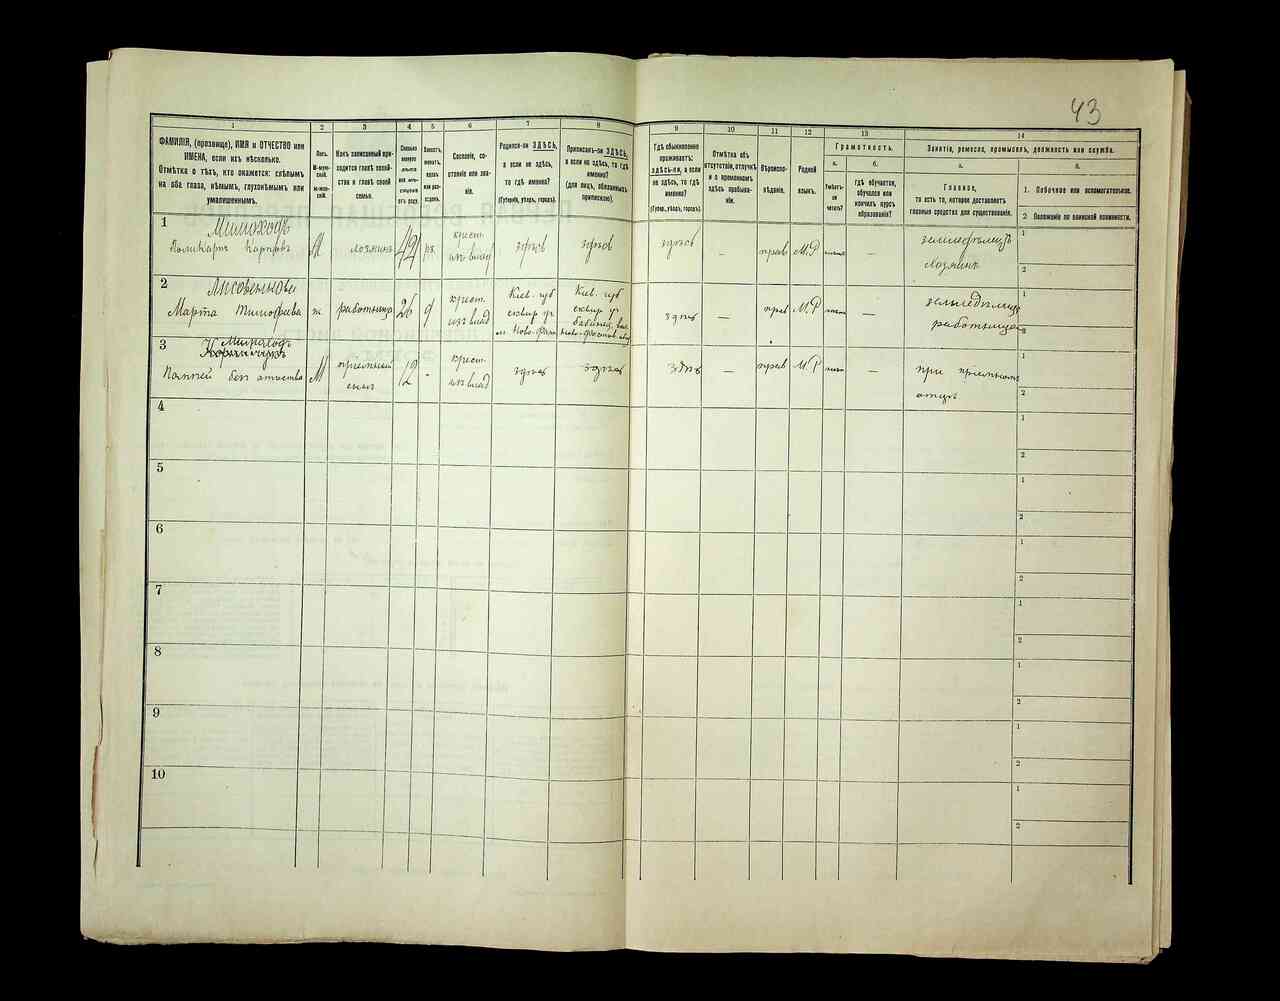 43
1 2 3 4 5 6 7 8 9 10 11 12 13 14
ФАМИЛІЯ, (прозвище), ИМЯ и ОТЧЕСТВО или
ИМЕНА, если ихъ нѣсколько.
Отмѣтка о тѣхъ, кто окажется: слѣпымъ
на оба глаза, нѣмымъ, глухонѣмымъ или
умалишеннымъ.
Полъ.
М-муж-
ской.
Ж-жен-
скій.
Какъ записанный при-
ходится главѣ хозяй-
ства и главѣ своей
семьи.
Сколько
минуло
лѣтъ
или мѣс-
отъ роду.
Холостъ,
женатъ,
вдовъ
или раз-
веденъ.
Сословіе, со-
стояніе или зва-
ніе.
Родился-ли ЗДѢСЬ,
а если не здѣсь,
то гдѣ именно?
(Губернія, уѣздъ, городъ).
Приписанъ-ли ЗДѢСЬ,
а если не здѣсь, то гдѣ
именно?
(для лицъ, обязанныхъ
припискою).
Гдѣ обыкновенно
проживаетъ:
ЗДѢСЬ-ЛИ, а если
не здѣсь, то гдѣ
именно?
(Губер., уѣздъ, городъ).
Отмѣтка объ
отсутствіи, отлучкѣ
и о временномъ
здѣсь пребыва-
ніи.
Вѣроиспо-
вѣданіе.
Родной
языкъ.
Грамотность.
а. б.
Умѣетъ-
ли
читать?
гдѣ обучается,
обучался или
кончилъ курсъ
образованія?
Занятіе, ремесло, промыселъ, должность или служба.
а. б.
Главное,
то есть то, которое доставляетъ
главныя средства для существованія.
1. Побочное или вспомогательное.
2 Положеніе по воинской повинности.
1
Мимоходъ
Поликарпъ Карповъ М хозяинъ 49 крест. изъ влад здѣсь здѣсь здѣсь — прав М.Р —
земледѣлецъ
хозяинъ
1
2
2
Марта Тимофеева ж работница 26 д
крест.
изъ влад
Кіев. губ
сквир у
м Ново-
Кіев. губ
сквир у
здѣсь — прав М.Р —
работница
1
3
Мимоходъ
без отчества М
приемный
сынъ
12 -
крест.
изъ влад
здѣсь здѣсь здѣсь — прав М.Р —
при приемномъ
отцѣ
1
2
4
1
2
5
1
2
6
1
2
7
1
2
8
1
2
9
1
2
10
1
2